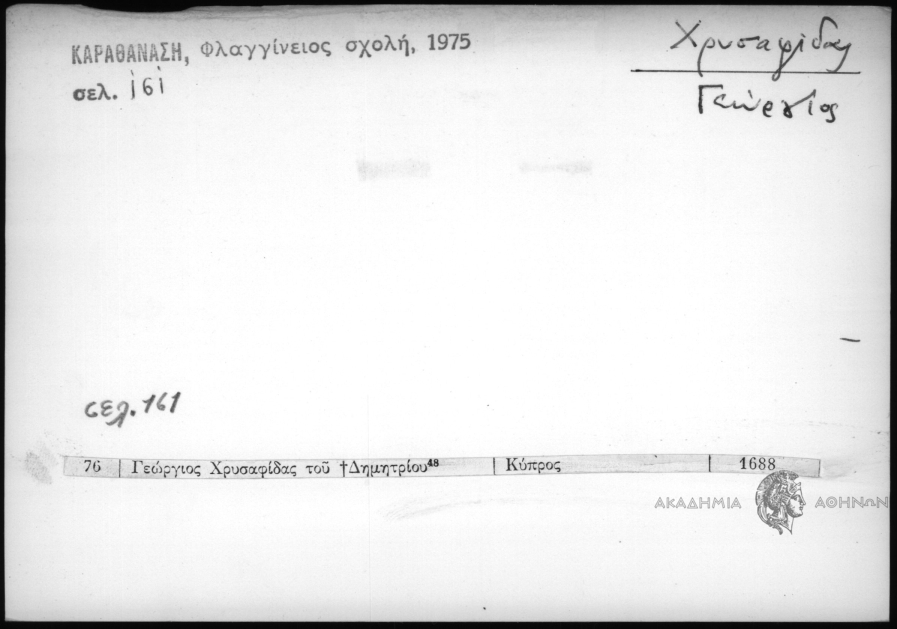 ΚΑΡΑΘΑΝΑΣΗ, Φλαγγίνειος σχολή, 1975
σελ. 161
Χρυσαφίδας
Γεώργιος
σελ. 161
76 | Γεώργιος Χρυσαφίδας τοῦ †Δημητρίου⁴⁸ | Κύπρος | 1688
ΑΚΑΔΗΜΙΑ ΑΘΗΝΩΝ